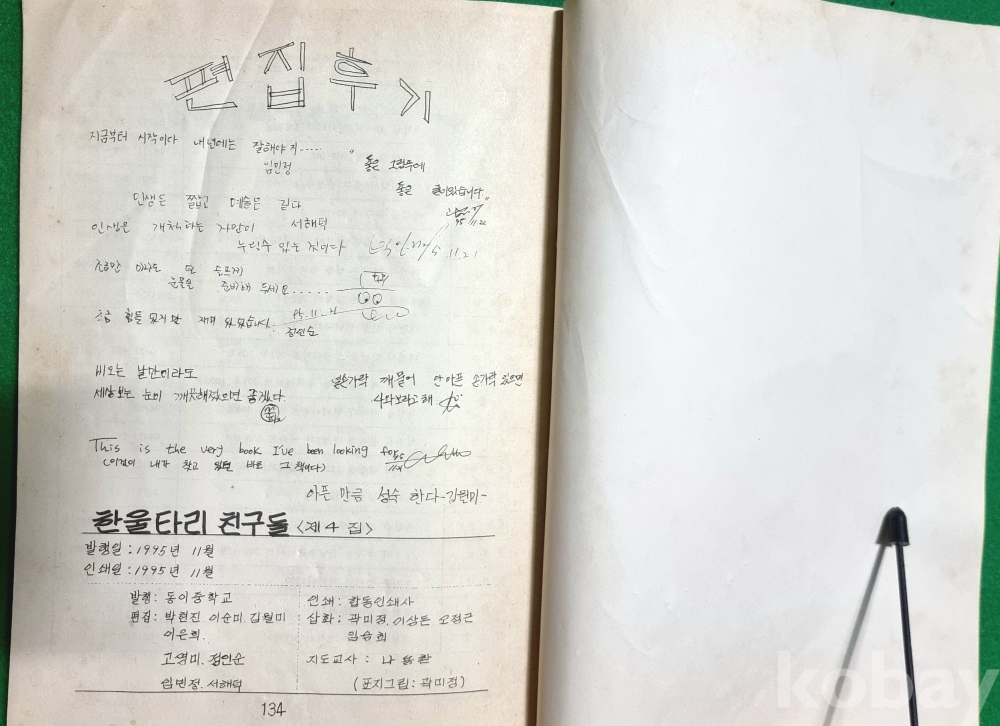 편집후기
지금부터 시작이다 내년에는 잘해야지.....
임민정
좋은 그림우에
좋은 글이있습니다"
95 11.22
인생은 짧고 예술은 길다
서해덕
인생은 개척하는 자만이
누릴수 있는 것이다
95.11.21
조금만 아파도 또 슬프지
눈물은 준비해 두세요.....
조금 힘들었지만 재미 있었습니다.
95.11.21
정인순
비오는 날만이라도
세상보는 눈이 깨끗해졌으면 좋겠다
열손가락 깨물어 안아픈 손가락 있으면
나와보라고해.
This is the very book I've been looking for
(이것이 내가 찾고 있던 바로 그 책이다)
아픈 만큼 성숙 한다-김월미-
한울타리 친구들 <제4집>
발행일:1995년 11월
인쇄일:1995년 11월
발행: 동이중학교
인쇄: 합동인쇄사
편집: 박현진 이순미.김월미
이은희.
고영미.정인순
임민정.서해덕
삽화: 곽미정.이상돈 오정근
임승희
지도교사: 나
(표지그림:곽미정)
134
kobay